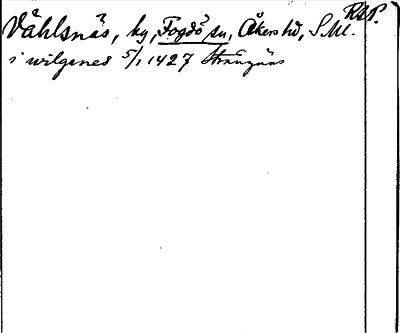 RAP.
Våhlsnäs, by, Fogdö sn, Åkers hd, S Ml.
i wilgenes 5/1 1427 Strängnäs